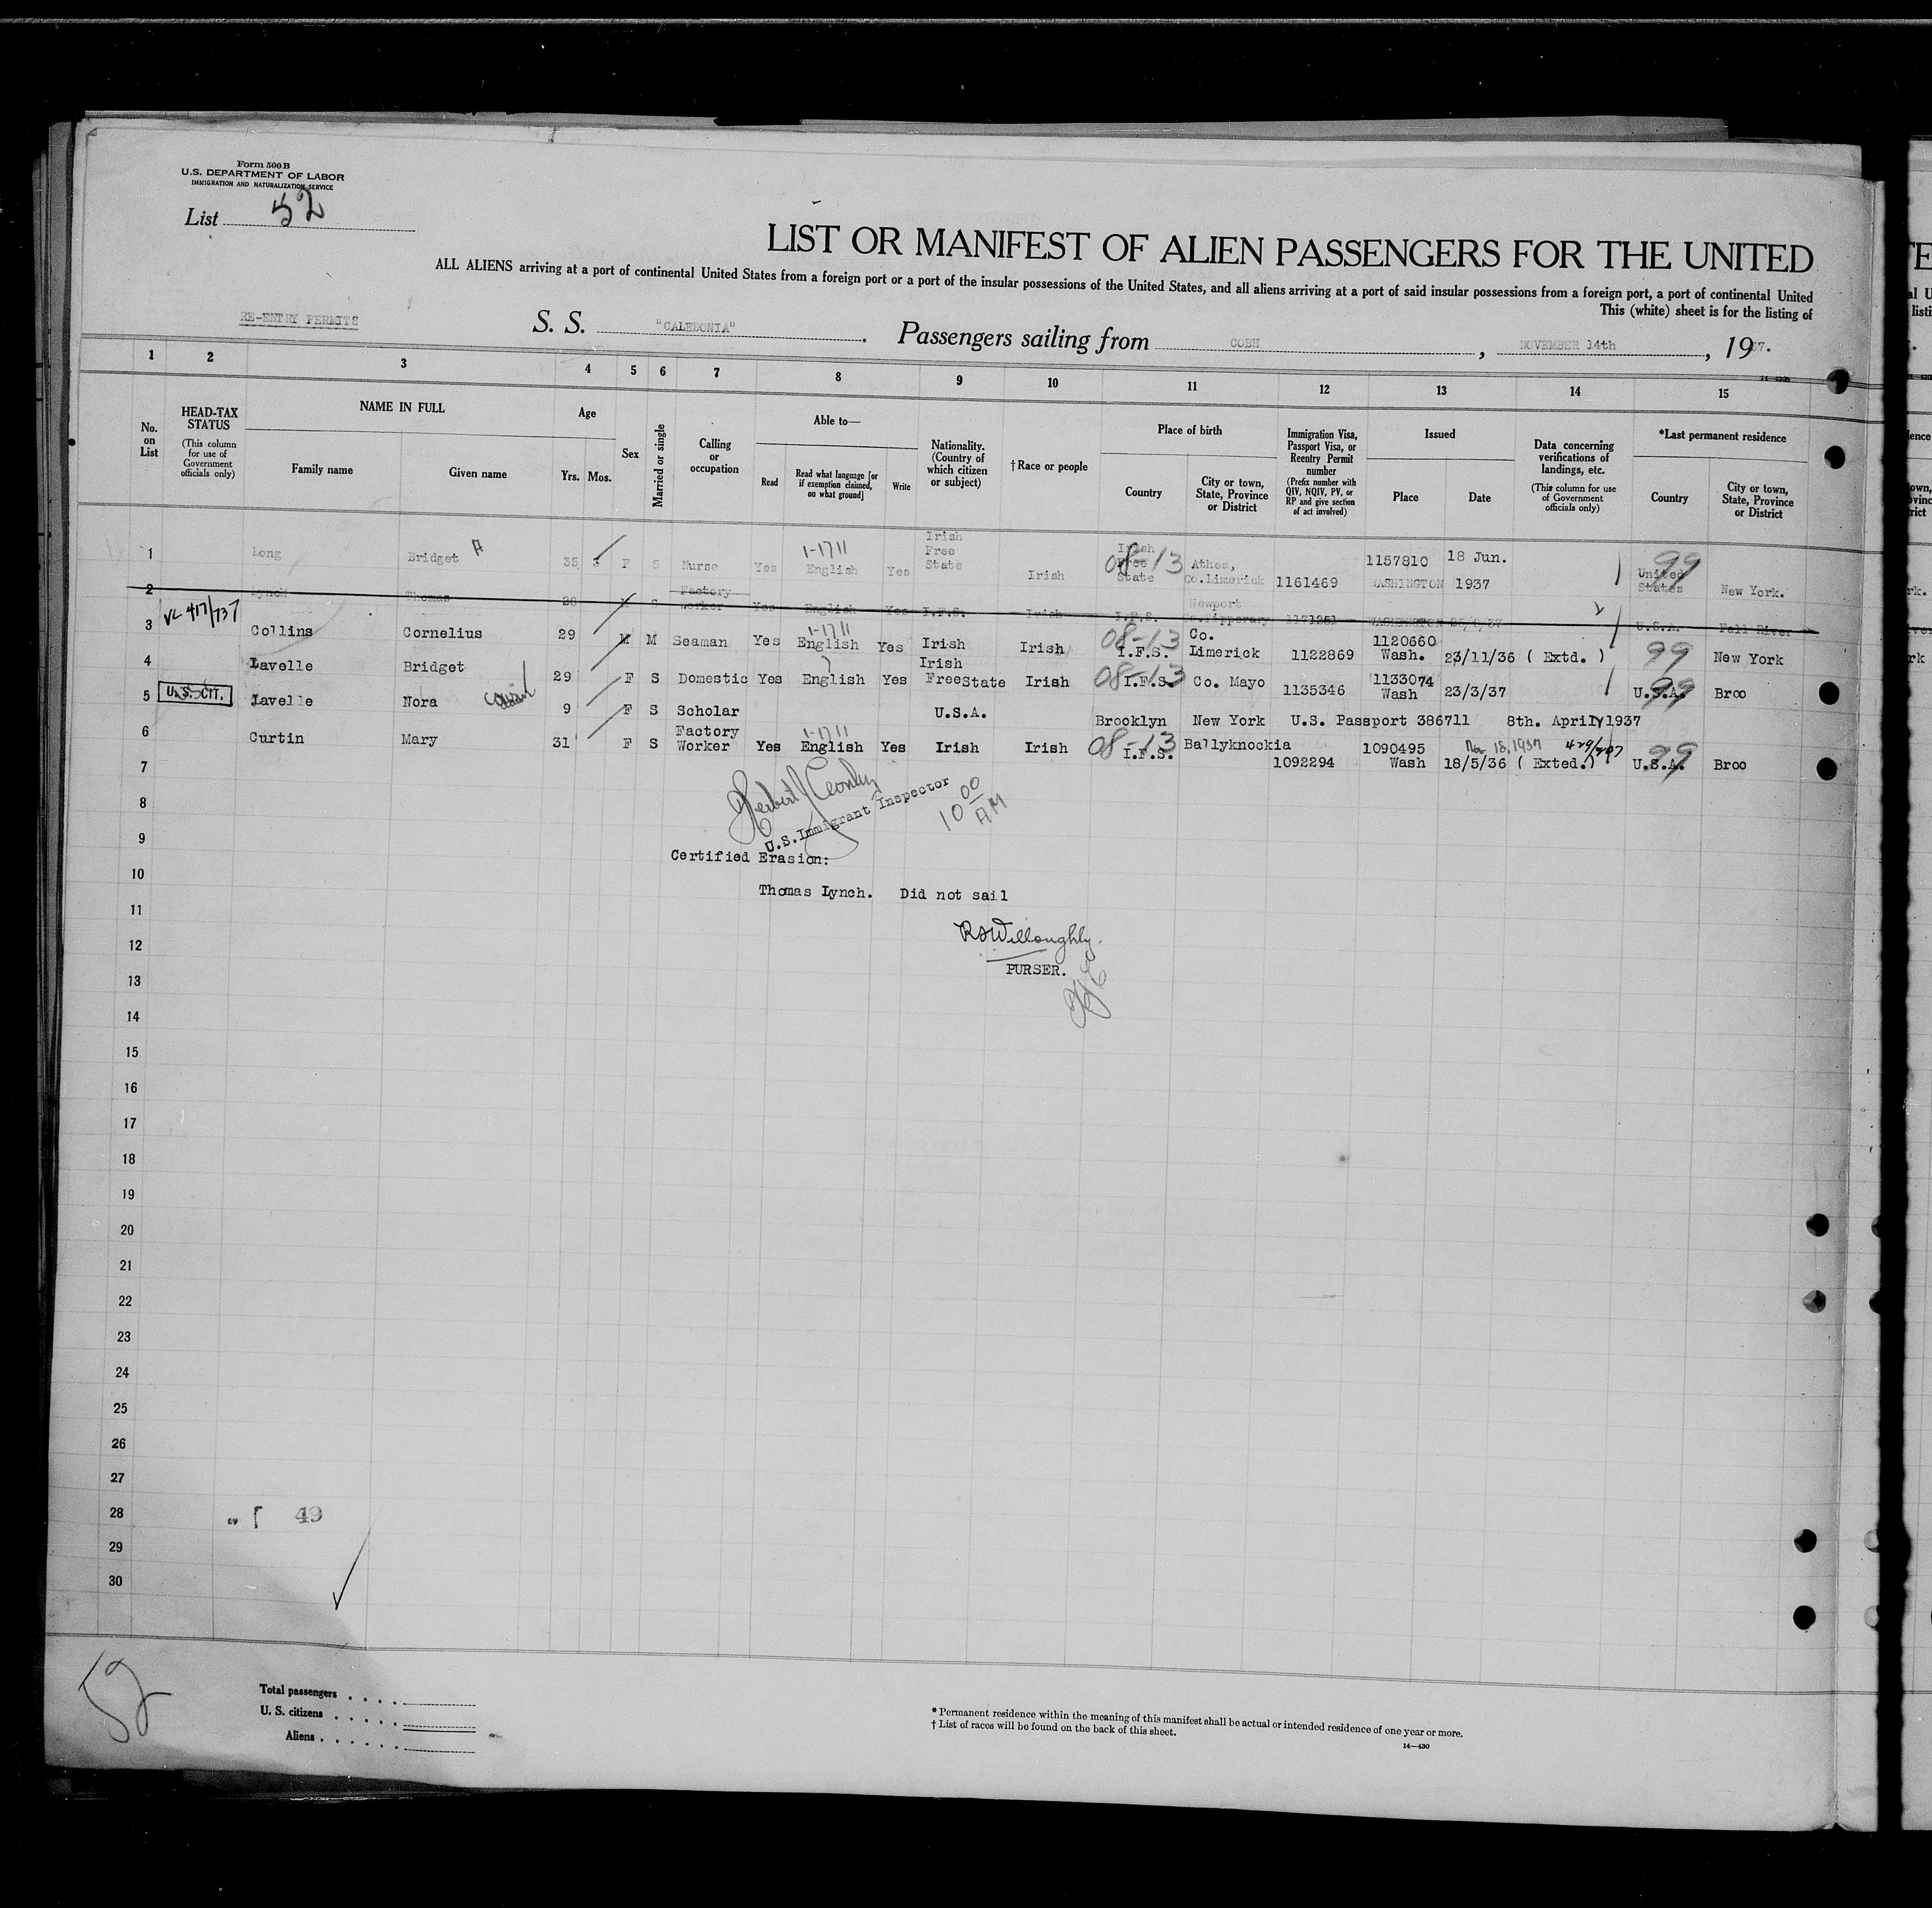 Form 500 B
U.S. DEPARTMENT OF LABOR
IMMIGRATION AND NATURALIZATION SERVICE
List 52
LIST OR MANIFEST OF ALIEN PASSENGERS FOR THE UNITED
ALL ALIENS arriving at a port of continental United States from a foreign port or a port of the insular possessions of the United States, and all aliens arriving at a port of said insular possessions from a foreign port, a port of continental United
This (white) sheet is for the listing of
RE-ENTRY PERMITS S. S. "CALEDONIA". Passengers sailing from COBH, NOVEMBER 14th, 1937.
1 2 3 4 5 6 7 8 9 10 11 12 13 14 15
No. on List
HEAD-TAX STATUS (This column for use of Government officials only)
NAME IN FULL
Family name Given name
Age
Yrs. Mos.
Sex
Married or single
Calling or occupation
Able to—
Read Read what language [or if exemption claimed, on what ground] Write
Nationality. (Country of which citizen or subject)
†Race or people
Place of birth
Country City or town, State, Province or District
Immigration Visa, Passport Visa, or Reentry Permit number (Prefix number with QIV, NQIV, PV, or RP and give section of act involved)
Issued
Place Date
Data concerning verifications of landings, etc. (This column for use of Government officials only)
*Last permanent residence
Country City or town, State, Province or District
1 Long Bridget A 35 3 F S Nurse Yes 1-1711 English Yes Irish Free State Irish 08-13 Irish Free State Athea, Co.Limerick 1161469 1157810 WASHINGTON 18 Jun. 1937 99 United States New York.
2 Lynch Thomas 28 M S Factory Worker Yes English Yes I.F.S. Irish I.F.S. Newport Co.Tipperary 1171251 WASHINGTON U.S.A. Fall River
3 417/737 Collins Cornelius 29 M M Seaman Yes 1-1711 English Yes Irish Irish 08-13 I.F.S. Co. Limerick 1122869 1120660 Wash. 23/11/36 ( Extd. ) 99 New York
4 Lavelle Bridget 29 F S Domestic Yes English Yes Irish FreeState Irish 08-13 I.F.S. Co. Mayo 1135346 1133074 Wash 23/3/37 99 U.S.A. Broo
5 U.S. CIT. Lavelle Nora cousin 9 F S Scholar U.S.A. Brooklyn New York U.S. Passport 386711 8th. April 1937
6 Curtin Mary 31 F S Factory Worker Yes 1-1711 English Yes Irish Irish 08-13 I.F.S. Ballyknockia 1092294 1090495 Wash 18/5/36 ( Exted.) Nov 18, 1937 99 U.S.A. Broo
7
U.S. Immigrant Inspector
10 00 AM
8
9
Certified Erasion:
10
Thomas Lynch. Did not sail
11
12
RSWilloughby.
PURSER.
13
14
15
16
17
18
19
20
21
22
23
24
25
26
27
28 49
29
30
52
Total passengers
U. S. citizens
Aliens
* Permanent residence within the meaning of this manifest shall be actual or intended residence of one year or more.
† List of races will be found on the back of this sheet.
14—430